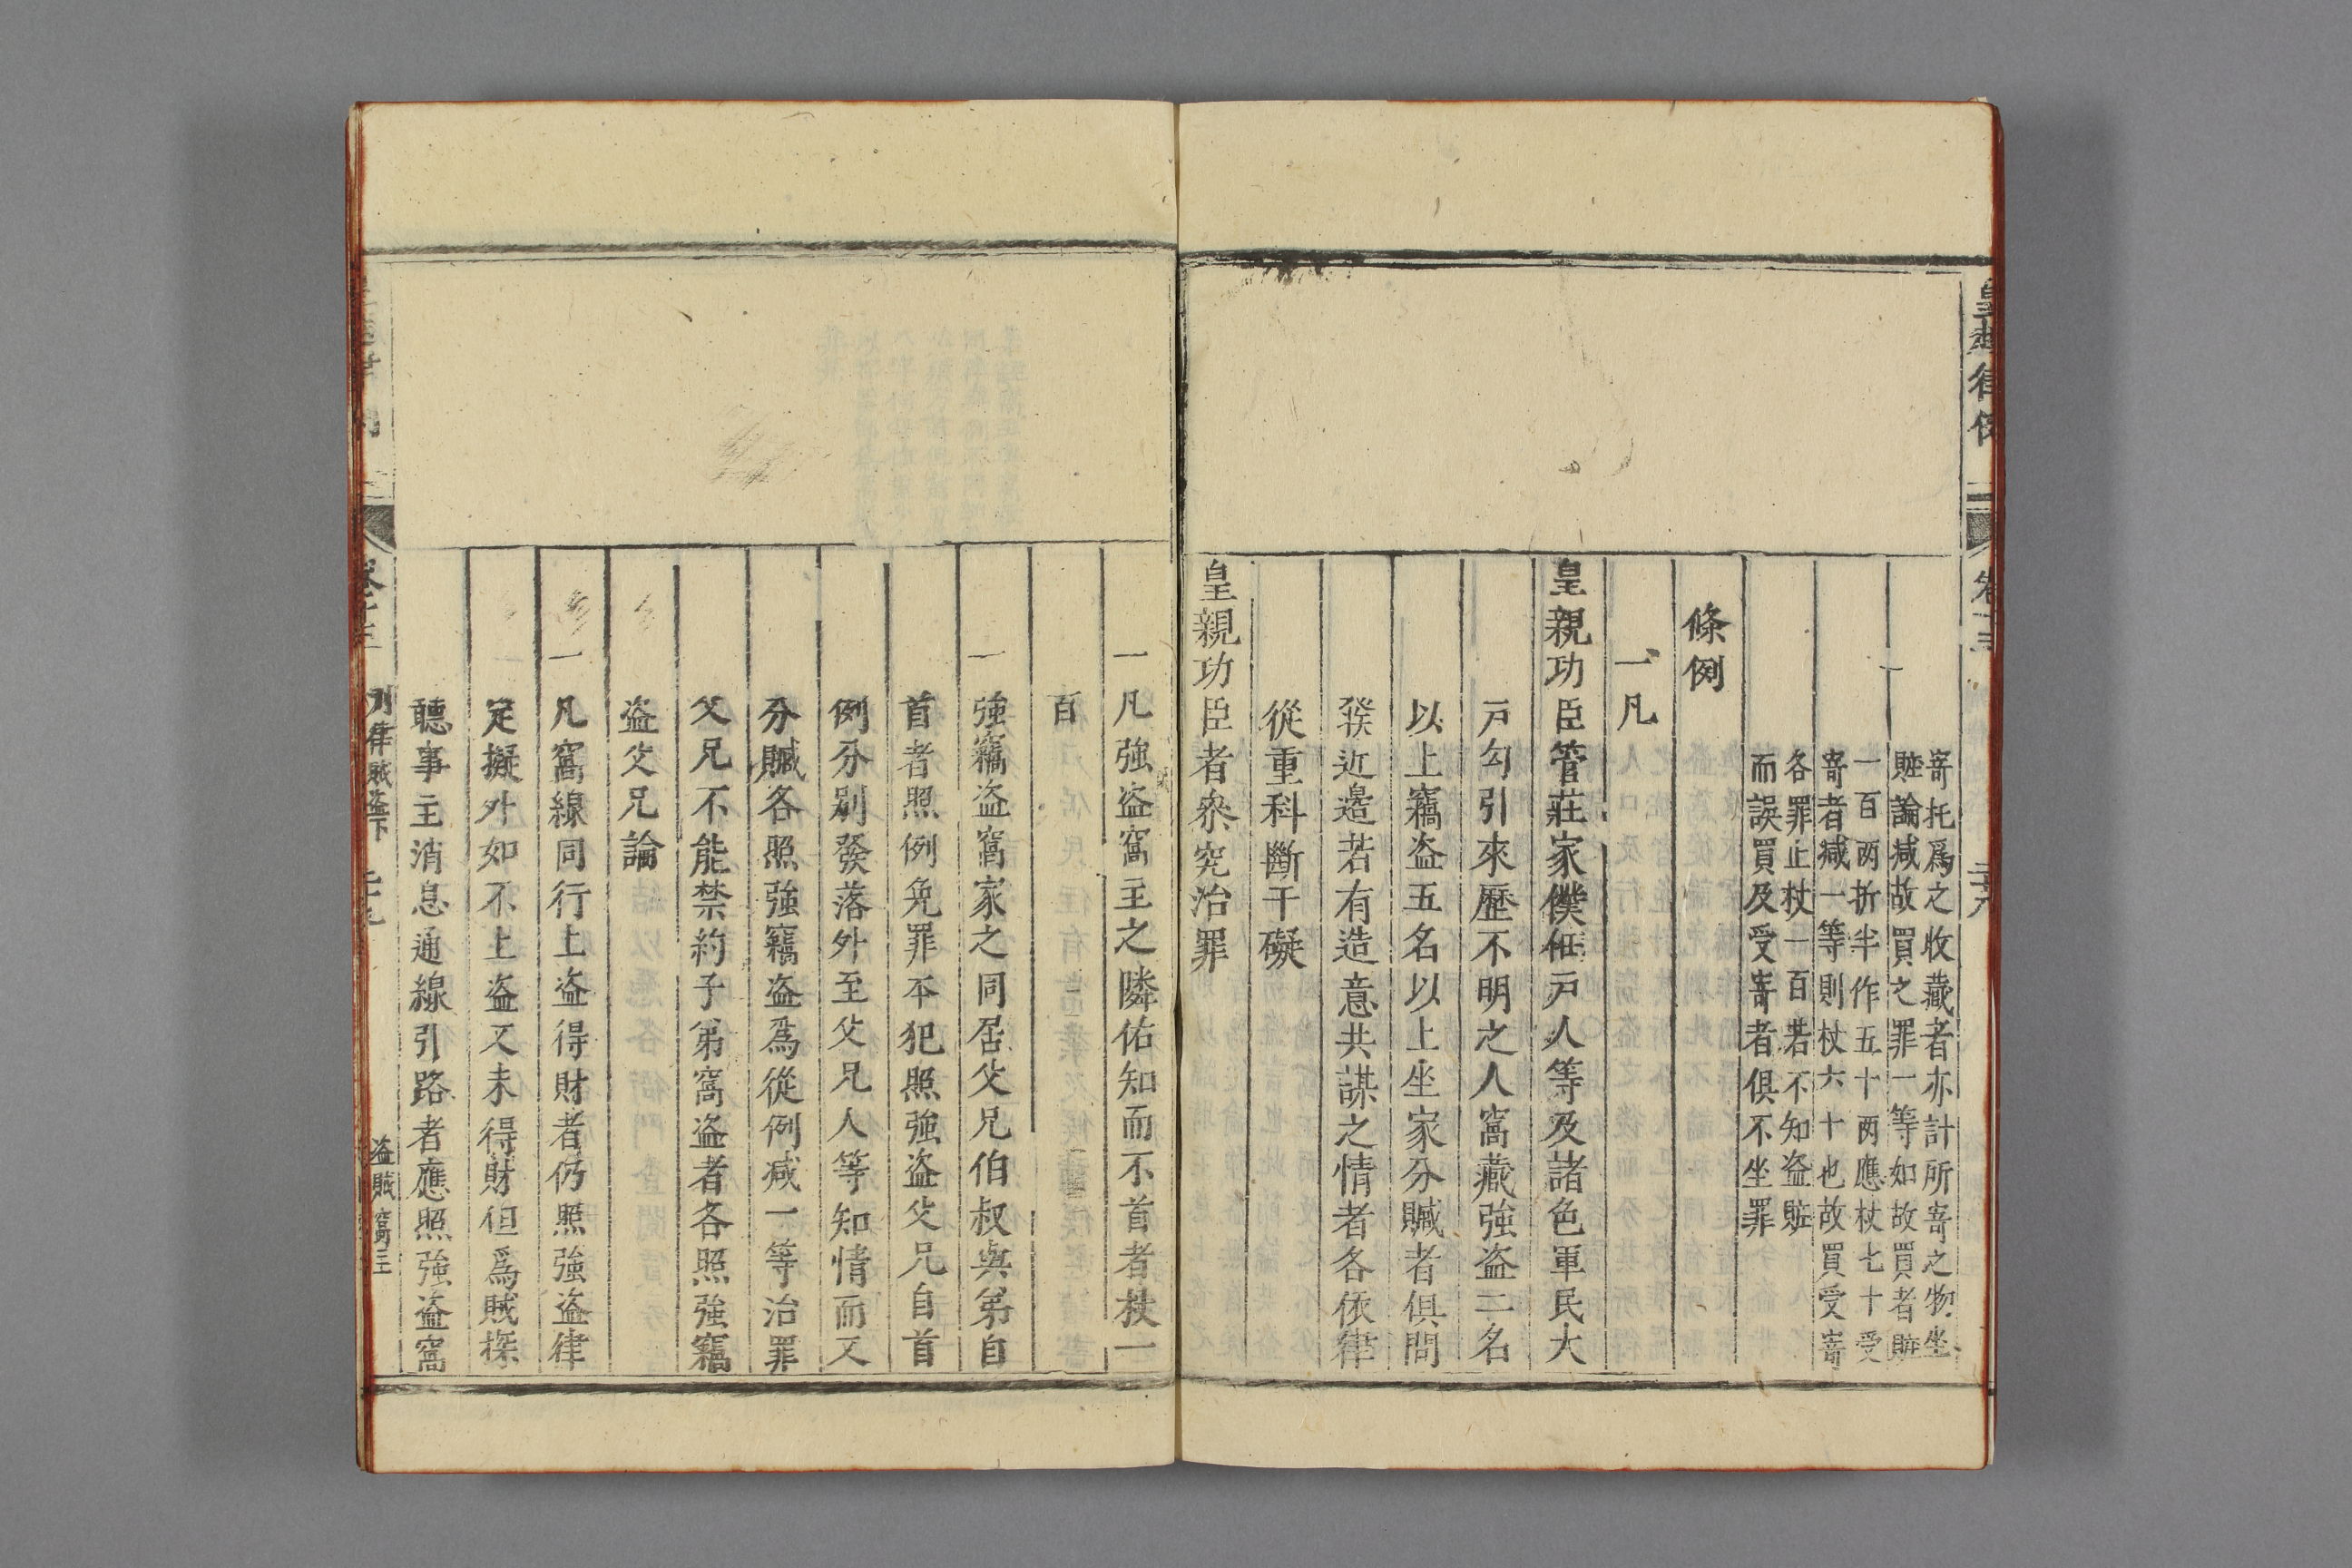 寄托爲之收藏者亦計所寄之物坐
賍論减故買之罪一等如故買者賍
一百兩折半作五十兩應杖七十受
寄者减一等則杖六十也故買受寄
各罪止杖一百若不知盗賍
而誤買及受寄者俱不坐罪
條例
一凡
皇親功臣管莊家僕佃戸人等及諸色軍民大
戸勾引來歷不明之人窩藏強盗二名
以上竊盗五名以上坐家分贓者俱問
發近邉若有造意共謀之情者各依律
從重科斷干礙
皇親功臣者叅究治罪
一凡強盗窩主之隣佑知而不首者杖一
百
一強竊盗窩家之同居父兄伯叔與弟自
首者照例免罪本犯照強盗父兄自首
例分别發落外至父兄人等知情而又
分贓各照強竊盗爲從例减一等治罪
父兄不能禁約子弟窩盗者各照強竊
盗父兄論
一凡窩線同行上盗得財者仍照強盗律
定擬外如不上盗又未得財但爲賊探
聽事主消息通線引路者應照強盗窩
刑律賊盗下
盗賊窩主